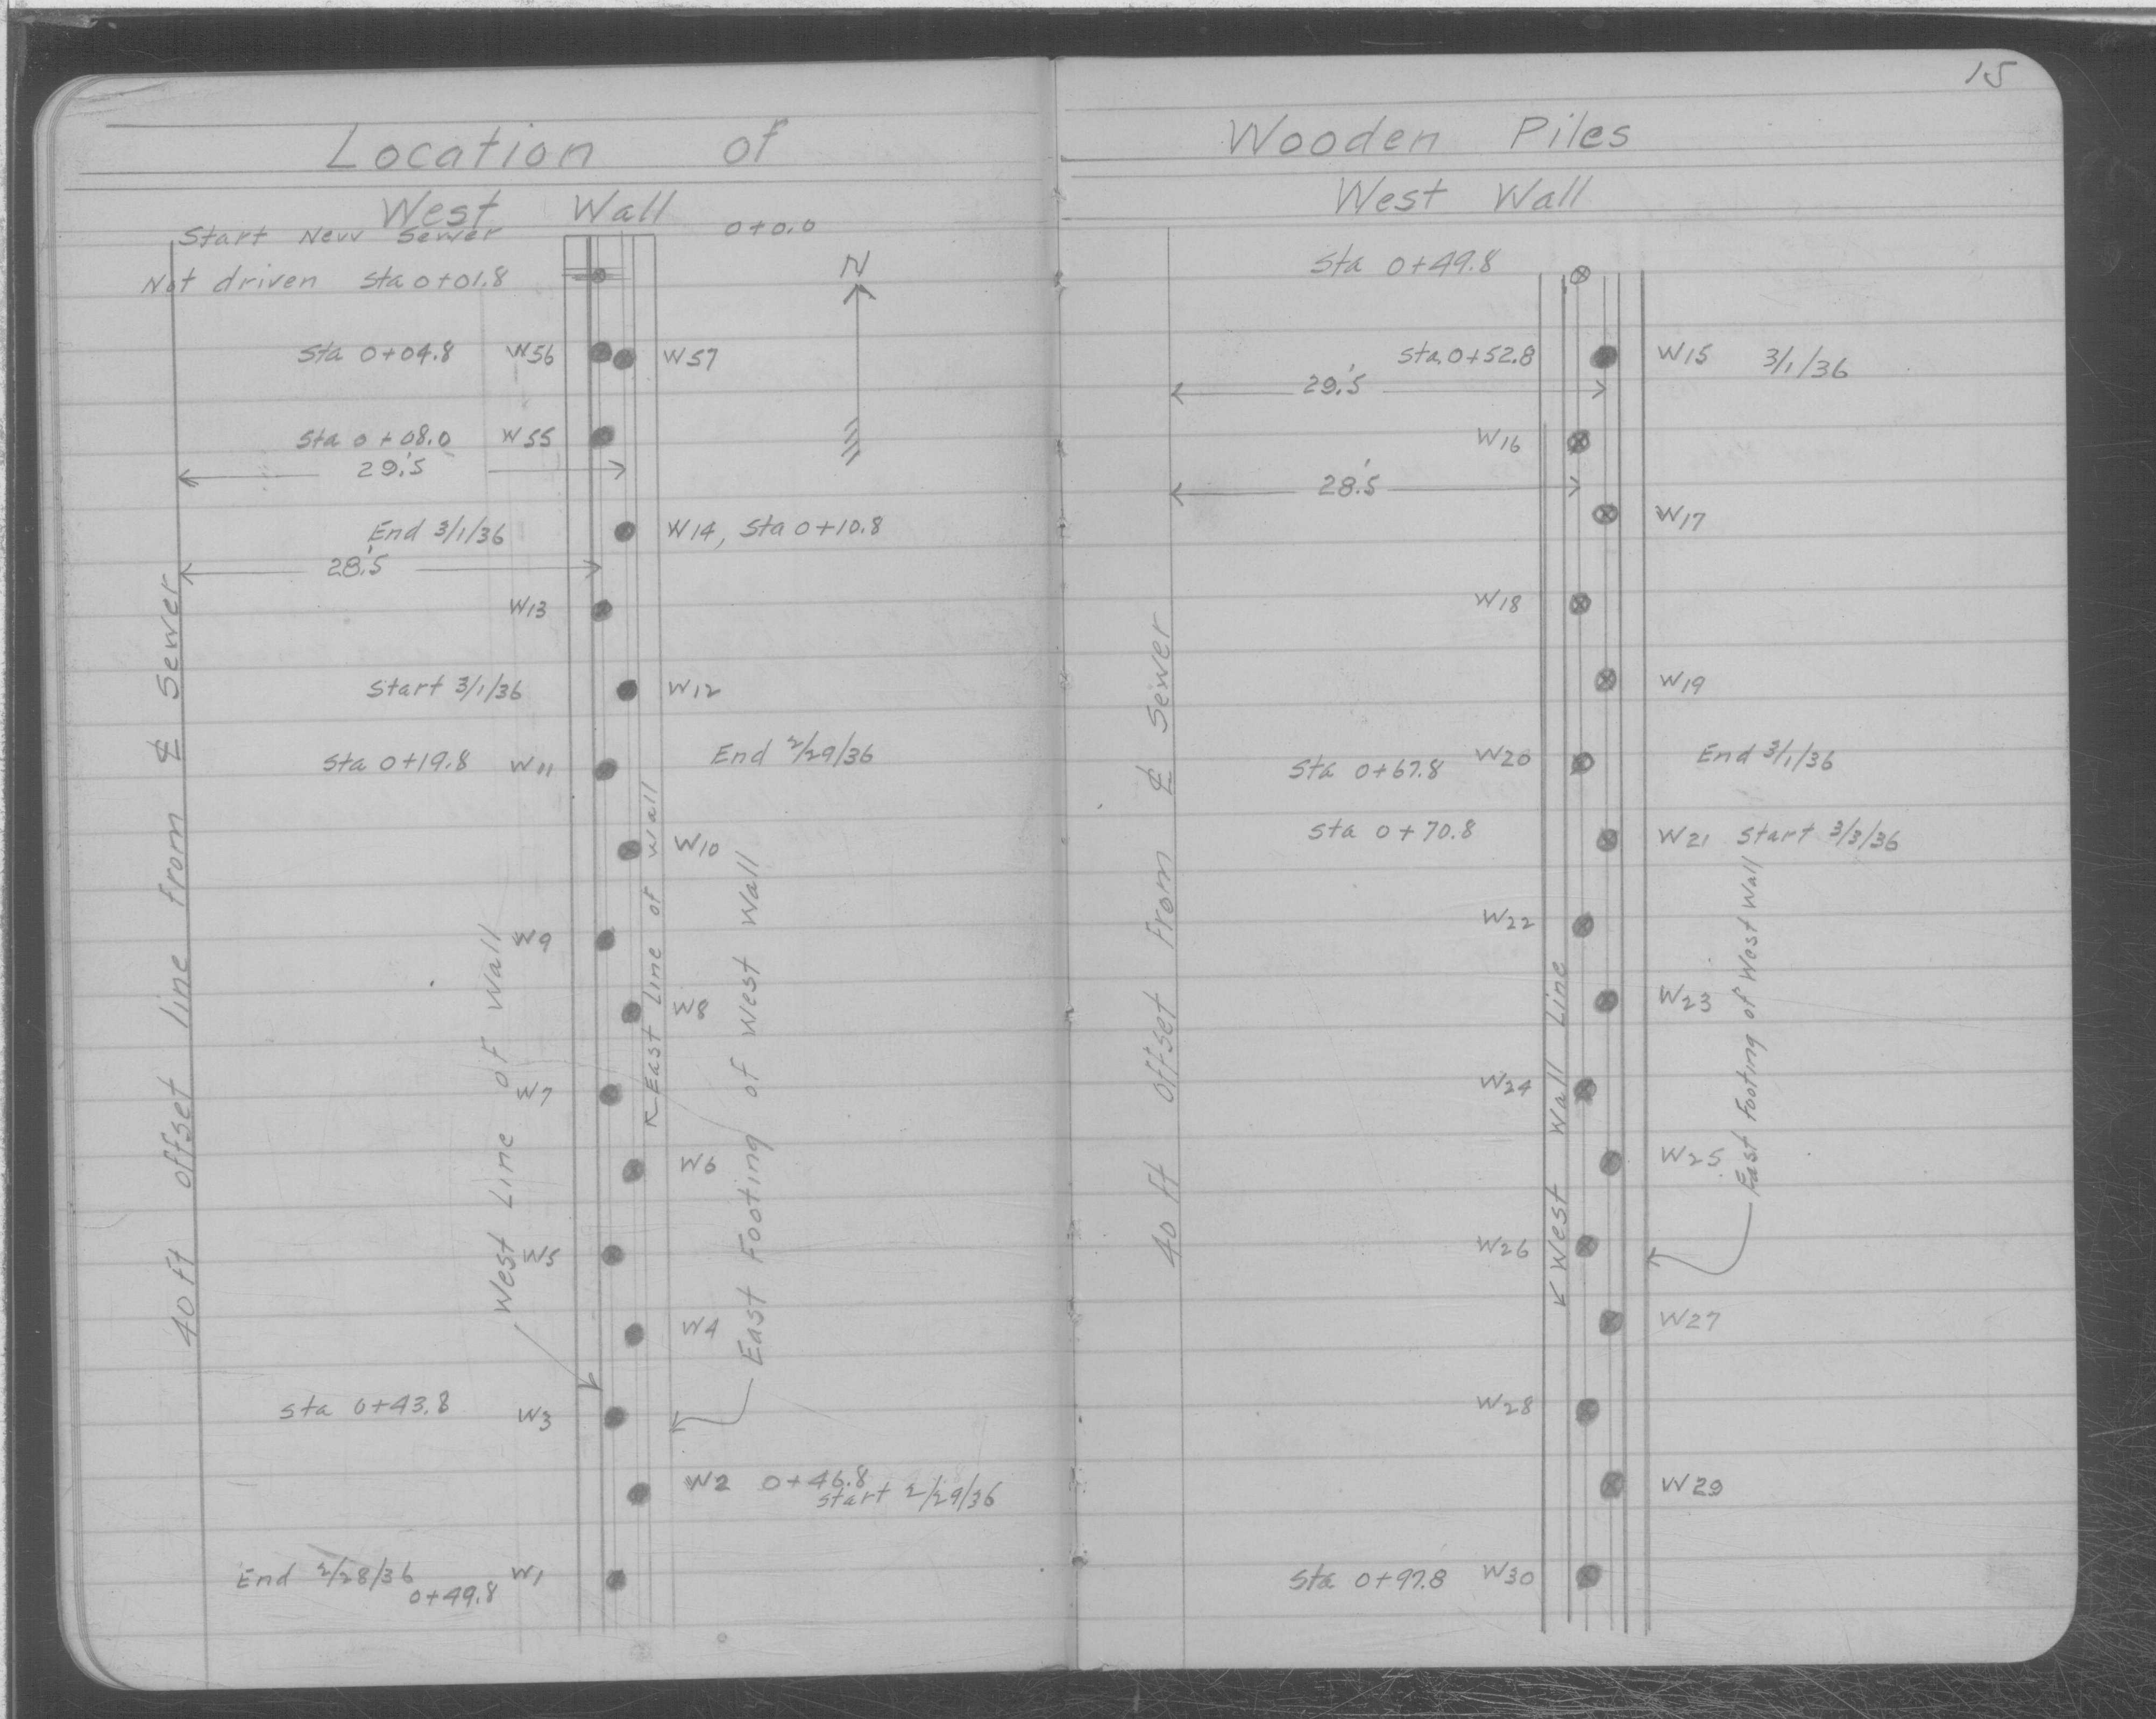 15
Location of Wooden Piles
West Wall
0+0.0
Start New Sewer
Not driven Sta 0+01.8
N
Sta 0+04.8 W56 W57
Sta 0+08.0 W55
29.'5
End 3/1/36 W14, Sta 0+10.8
28.'5
W13
Start 3/1/36 W12
Sta 0+19.8 W11 End 2/29/36
W10
W9
W8
W7
W6
W5
W4
Sta 0+43.8 W3
W2 0+46.8
Start 2/29/36
End 2/28/36 W1
0+49.8
40 ft offset line from ℄ Sewer
West Line of Wall
East Line of Wall
East Footing of West Wall
West Wall
Sta 0+49.8
Sta. 0+52.8 W15 3/1/36
29.'5
W16
28.'5
W17
W18
W19
Sta 0+67.8 W20 End 3/1/36
Sta 0+70.8 W21 Start 3/3/36
W22
W23
W24
W25
W26
W27
W28
W29
Sta. 0+97.8 W30
40 ft offset From ℄ Sewer
West Wall Line
East Footing of West Wall